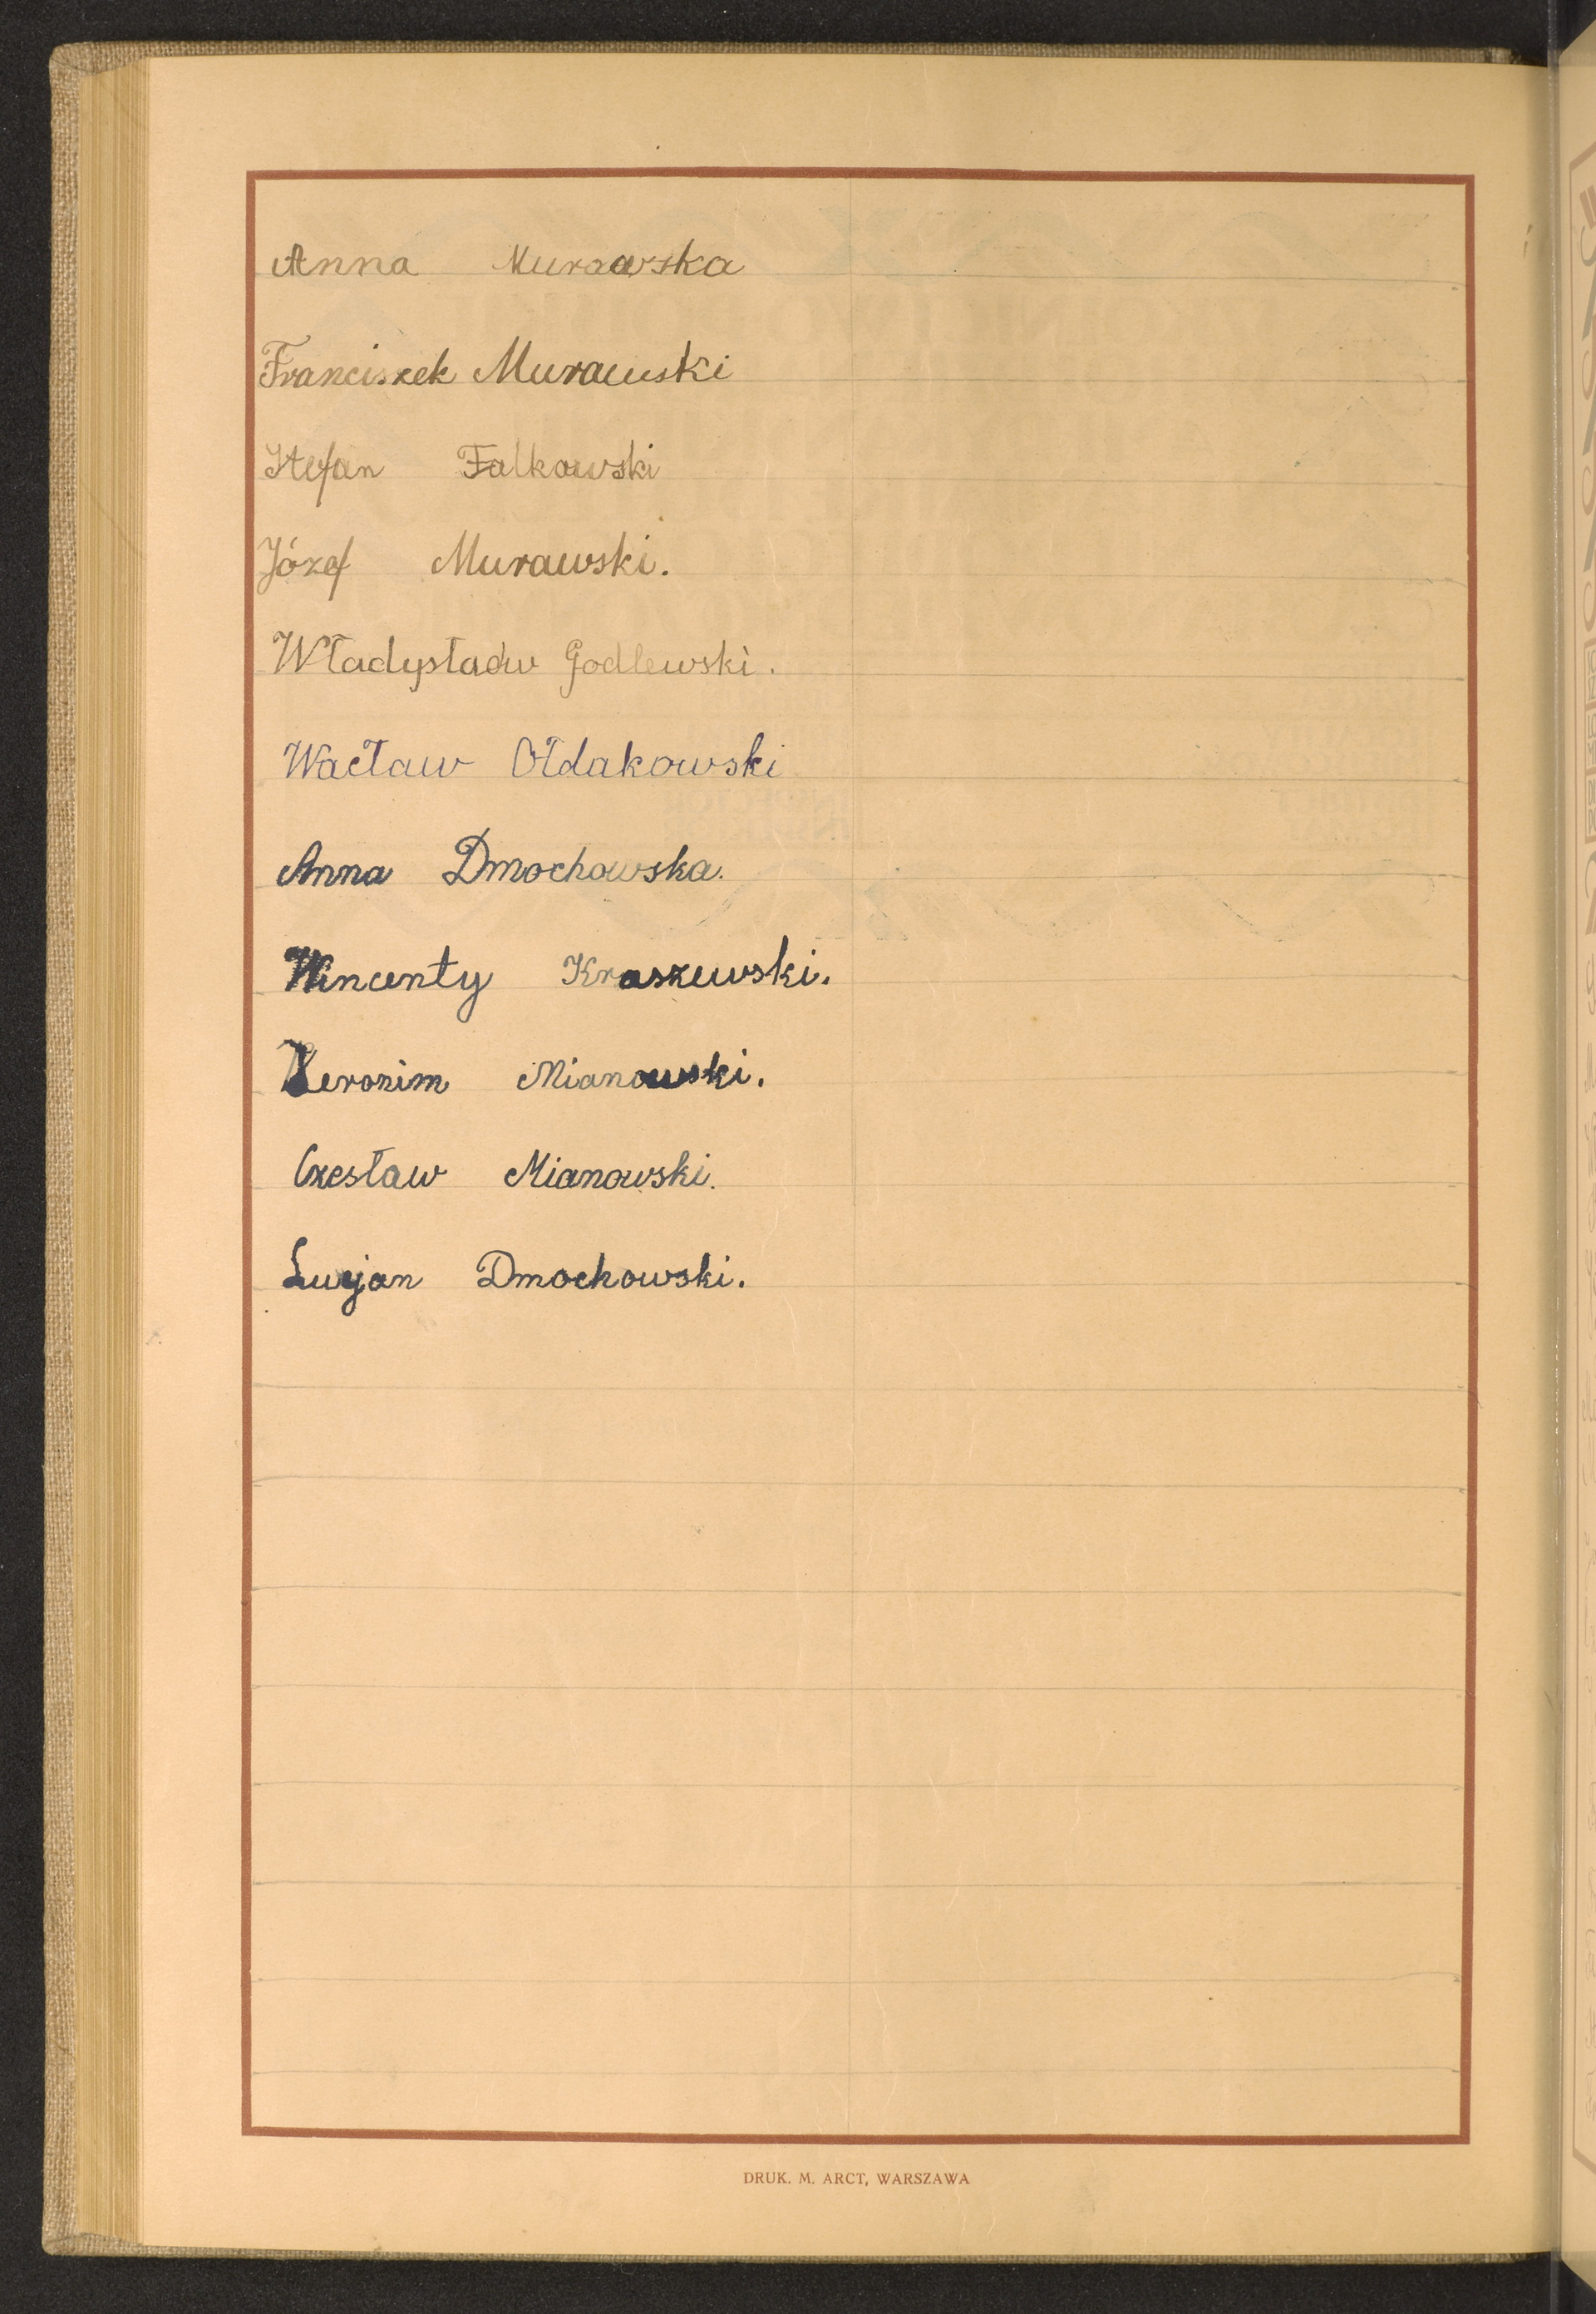 Anna Murawska
Franciszek Murawski
Stefan Falkowski
Józef Murawski.
Władysław Godlewski.
Wacław Ołdakowski
Anna Dmochowska.
Wincenty Kraszewski.
Mianowski.
Czesław Mianowski.
Lucjan Dmochowski.
DRUK. M. ARCT, WARSZAWA